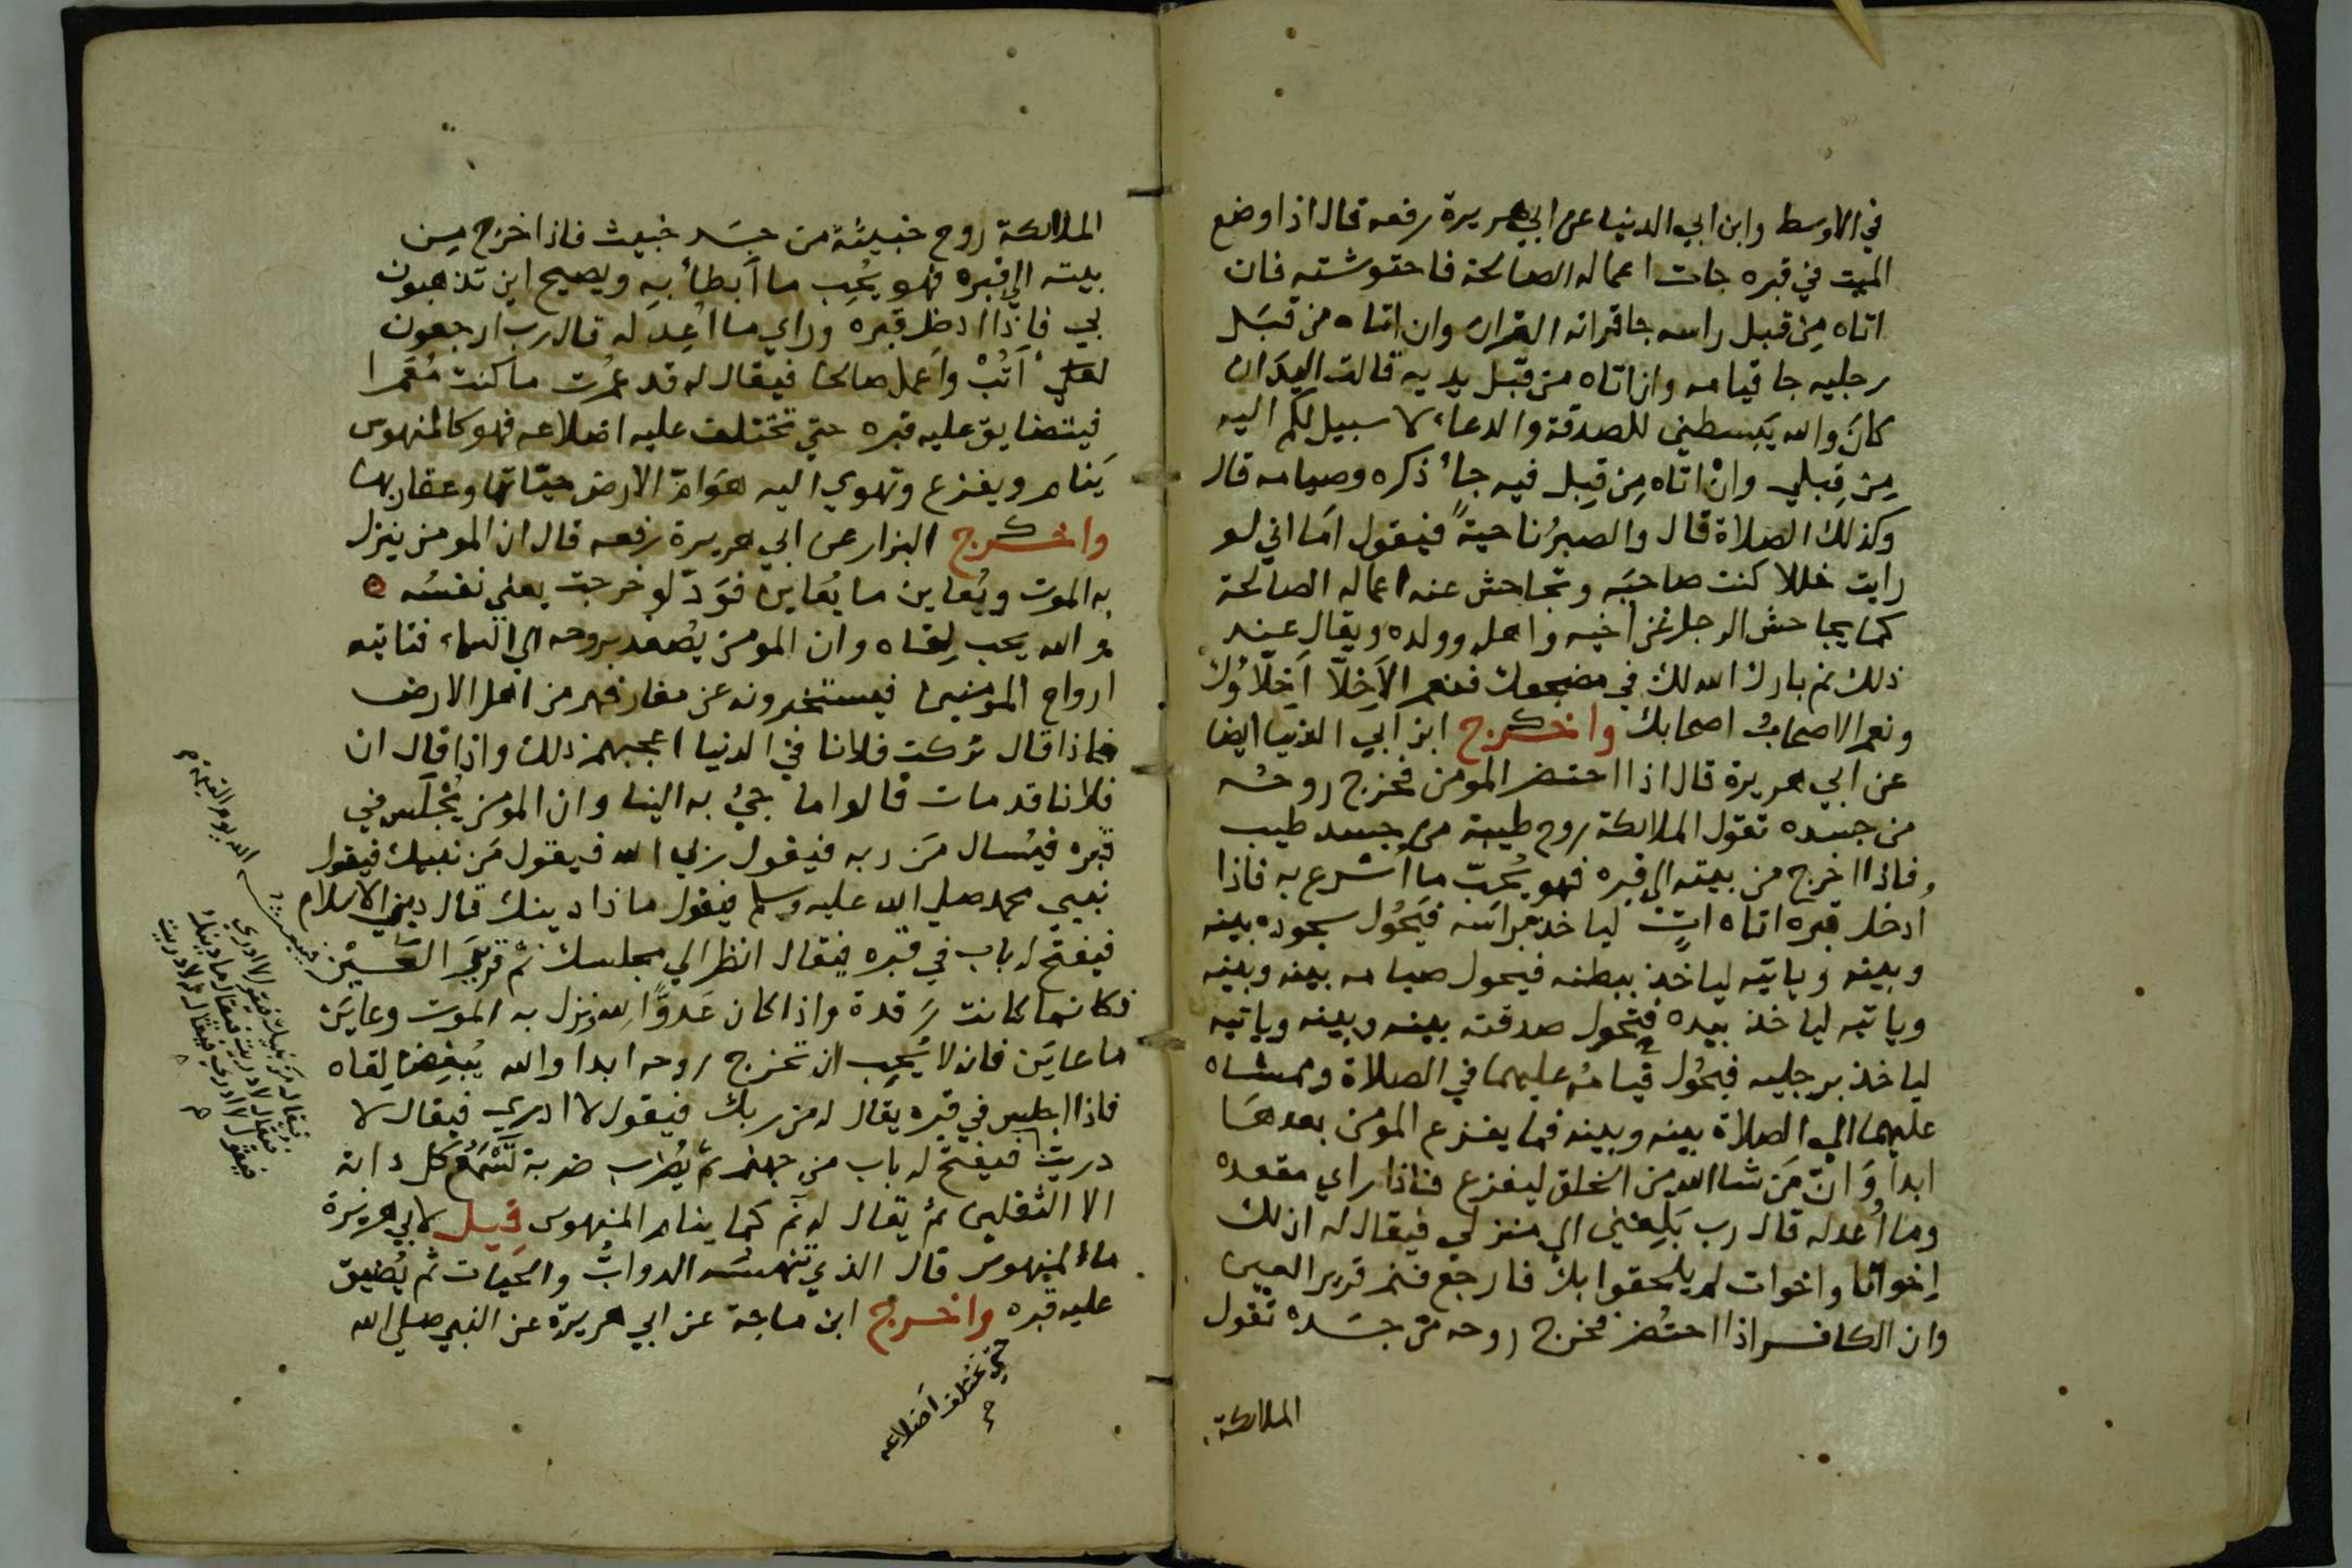 في الاوسط وابن ابي الدنيا عن ابي هريرة رفعه قال اذا وضع
الميت في قبره جات اعماله الصالحة فاحتوشته فان
اتاه مِن قبل راسه جا قرانه القران وان اتاه من قبَل
رجليه جا قيامه وان اتاه من قبل يديه قالت اليدَان
كانَ والله يَبسطني للصدقة والدعاء لا سبيل لكم اليه
مِن قِبلي وانْ اتاه مِن قِبل فيه جاء ذكره وصيامه قال
وكذلك الصلاة قال والصبرُ ناحيةً فيقول امَا اني لو
رايت خللا كنت صاحبَه وتجاحش عنه اعماله الصالحة
كما يجاحش الرجل عن اخيه واهله وولده ويقال عند
ذلك نم بارك الله لك في مضجعك فنعم الاَخِلّا اَخِلّاوُك
ونعم الاصحابُ اصحابك واخرج ابن ابي الدنيا ايضا
عن ابي هريرة قال اذا احتضر المومن فخرج روحُه
من جسده تقول الملائكة روح طيبة من جسد طيب
فاذا اخرج من بيته الي قبره فهو يُحبّ ما اُسرع به فاذا
اُدخل قبره اتاه اتٍ لياخذ براسه فيَحُول سجوده بينه
وبينه وياتيه لياخذ ببطنه فيحول صيامه بينه وبينه
وياتيه لياخذ بيده فتحول صدقته بينه وبينه وياتيه
لياخذ برجليه فيحُول قيامُه عليهما في الصلاة وممشاه
عليهما الي الصلاة بينه وبينه فما يفزع المومن بعدهَا
ابدا وَانّ مَن شا الله من الخلق ليفزع فاذا راي مقعده
وما اُعد له قال رب بَلِغني الي منزلي فيقال له ان لك
اِخوانا واخوات لم يلحقوا بك فارجع فنم قرير العين
وان الكافر اذا احتُضر فخرج روحه من جسَده تقول
الملائكة
الملائكة روح خبيثة من جسَد خبيث فاذا اخرج مِن
بيته الي قبره فهو يُحِب ما اَبطأ بِه ويصيح اين تذهبون
بي فاِذا ادخل قبره وراي ما اُعِد له قال رب ارجعون
لعلي اَتُبْ وَاَعمل صالحا فيقال له قد عمرت ما كنت مُعَمرا
فيتضايق عليه قبره حتي تختلف عليه اضلاعه فهو كالمنهوس
يَنام ويفزع وتهوي اليه هوَامّ الارض حيّاتها وعقاربها
واخرج البزار عن ابي هريرة رفعه قال ان المومن ينزل
به الموت ويُعاين ما يُعاين فوَدّ لو خرجت يعني نفسُه
والله يحب لِقاه وان المومن يصُعد بروحه الي السماء فتاتيه
ارواح المومنين فيستخبرونه عن معارفهم من اهل الارض
فاذا قال تركت فلانا في الدنيا اعجبهم ذلك واذا قال ان
فلانا قد مات قالوا ما جيُ به الينا وان المومن يُجْلَس في
قبره فيُسال مَن ربه فيقول ربي الله فيقول مَن نبيك فيقول
نبيي محمد صلي الله عليه وسلم فيقول ماذا دينك قال ديني الاسلام
فيفتح له باب في قبره فيقال انظر الي مجلسك نم قريرَ العَين
فكانما كانت رَقدة واذا كان عَدوًا لله ونزل به الموت وعايَن
ما عايَن فانه لا يُحِب ان تخرج روحه ابدا والله يُبغِض لقاه
فاذا اجلس في قبره يقال له من ربك فيقول لا ادري فيقال لا
دريت فيفتح له باب من جهنم ثم يُضرب ضربة تَسْمَعُ كل دابة
الا الثقلين ثم يقال له نَم كما ينام المنهوس قيل لابي هريرة
ما المنهوس قال الذي تنهسُه الدوابُّ والحيات ثم يُضيق
عليه قبره واخرج ابن ماجة عن ابي هريرة عن النبي صلي الله
حتي تختلف اضلاعه
الله يوم القيمة
فيقال من نبيك فيقول لا ادري
فيقال لا دريت فيقال ما دينك
فيقول لا ادري فيقال لا دريت